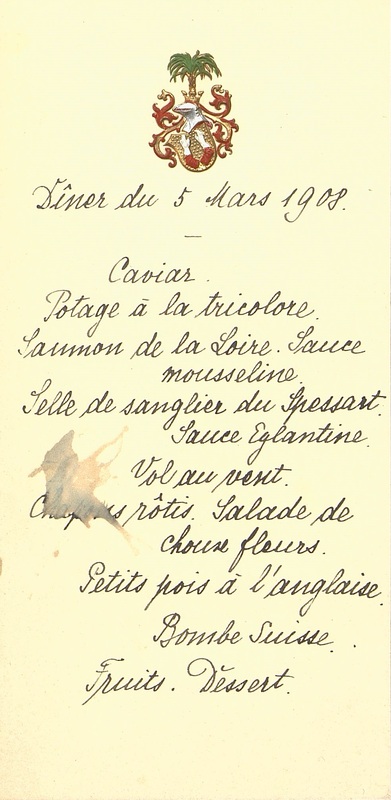 Dîner du 5 Mars 1908.
Caviar.
Potage à la tricolore.
Saumon de la Loire. Sauce
mousseline.
Selle de sanglier du Spessart.
Sauce Eglantine.
Vol au vent.
Chapons rôtis. Salade de
choux fleurs.
Petits pois à l'anglaise.
Bombe Suisse.
Fruits. Dessert.